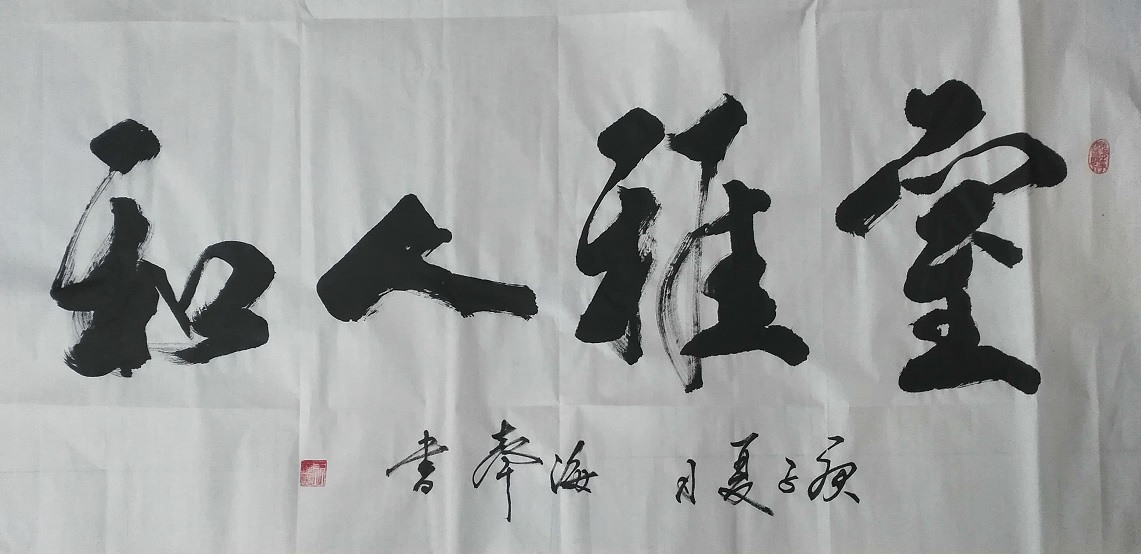 室雅人和
庚子夏月 海奉书